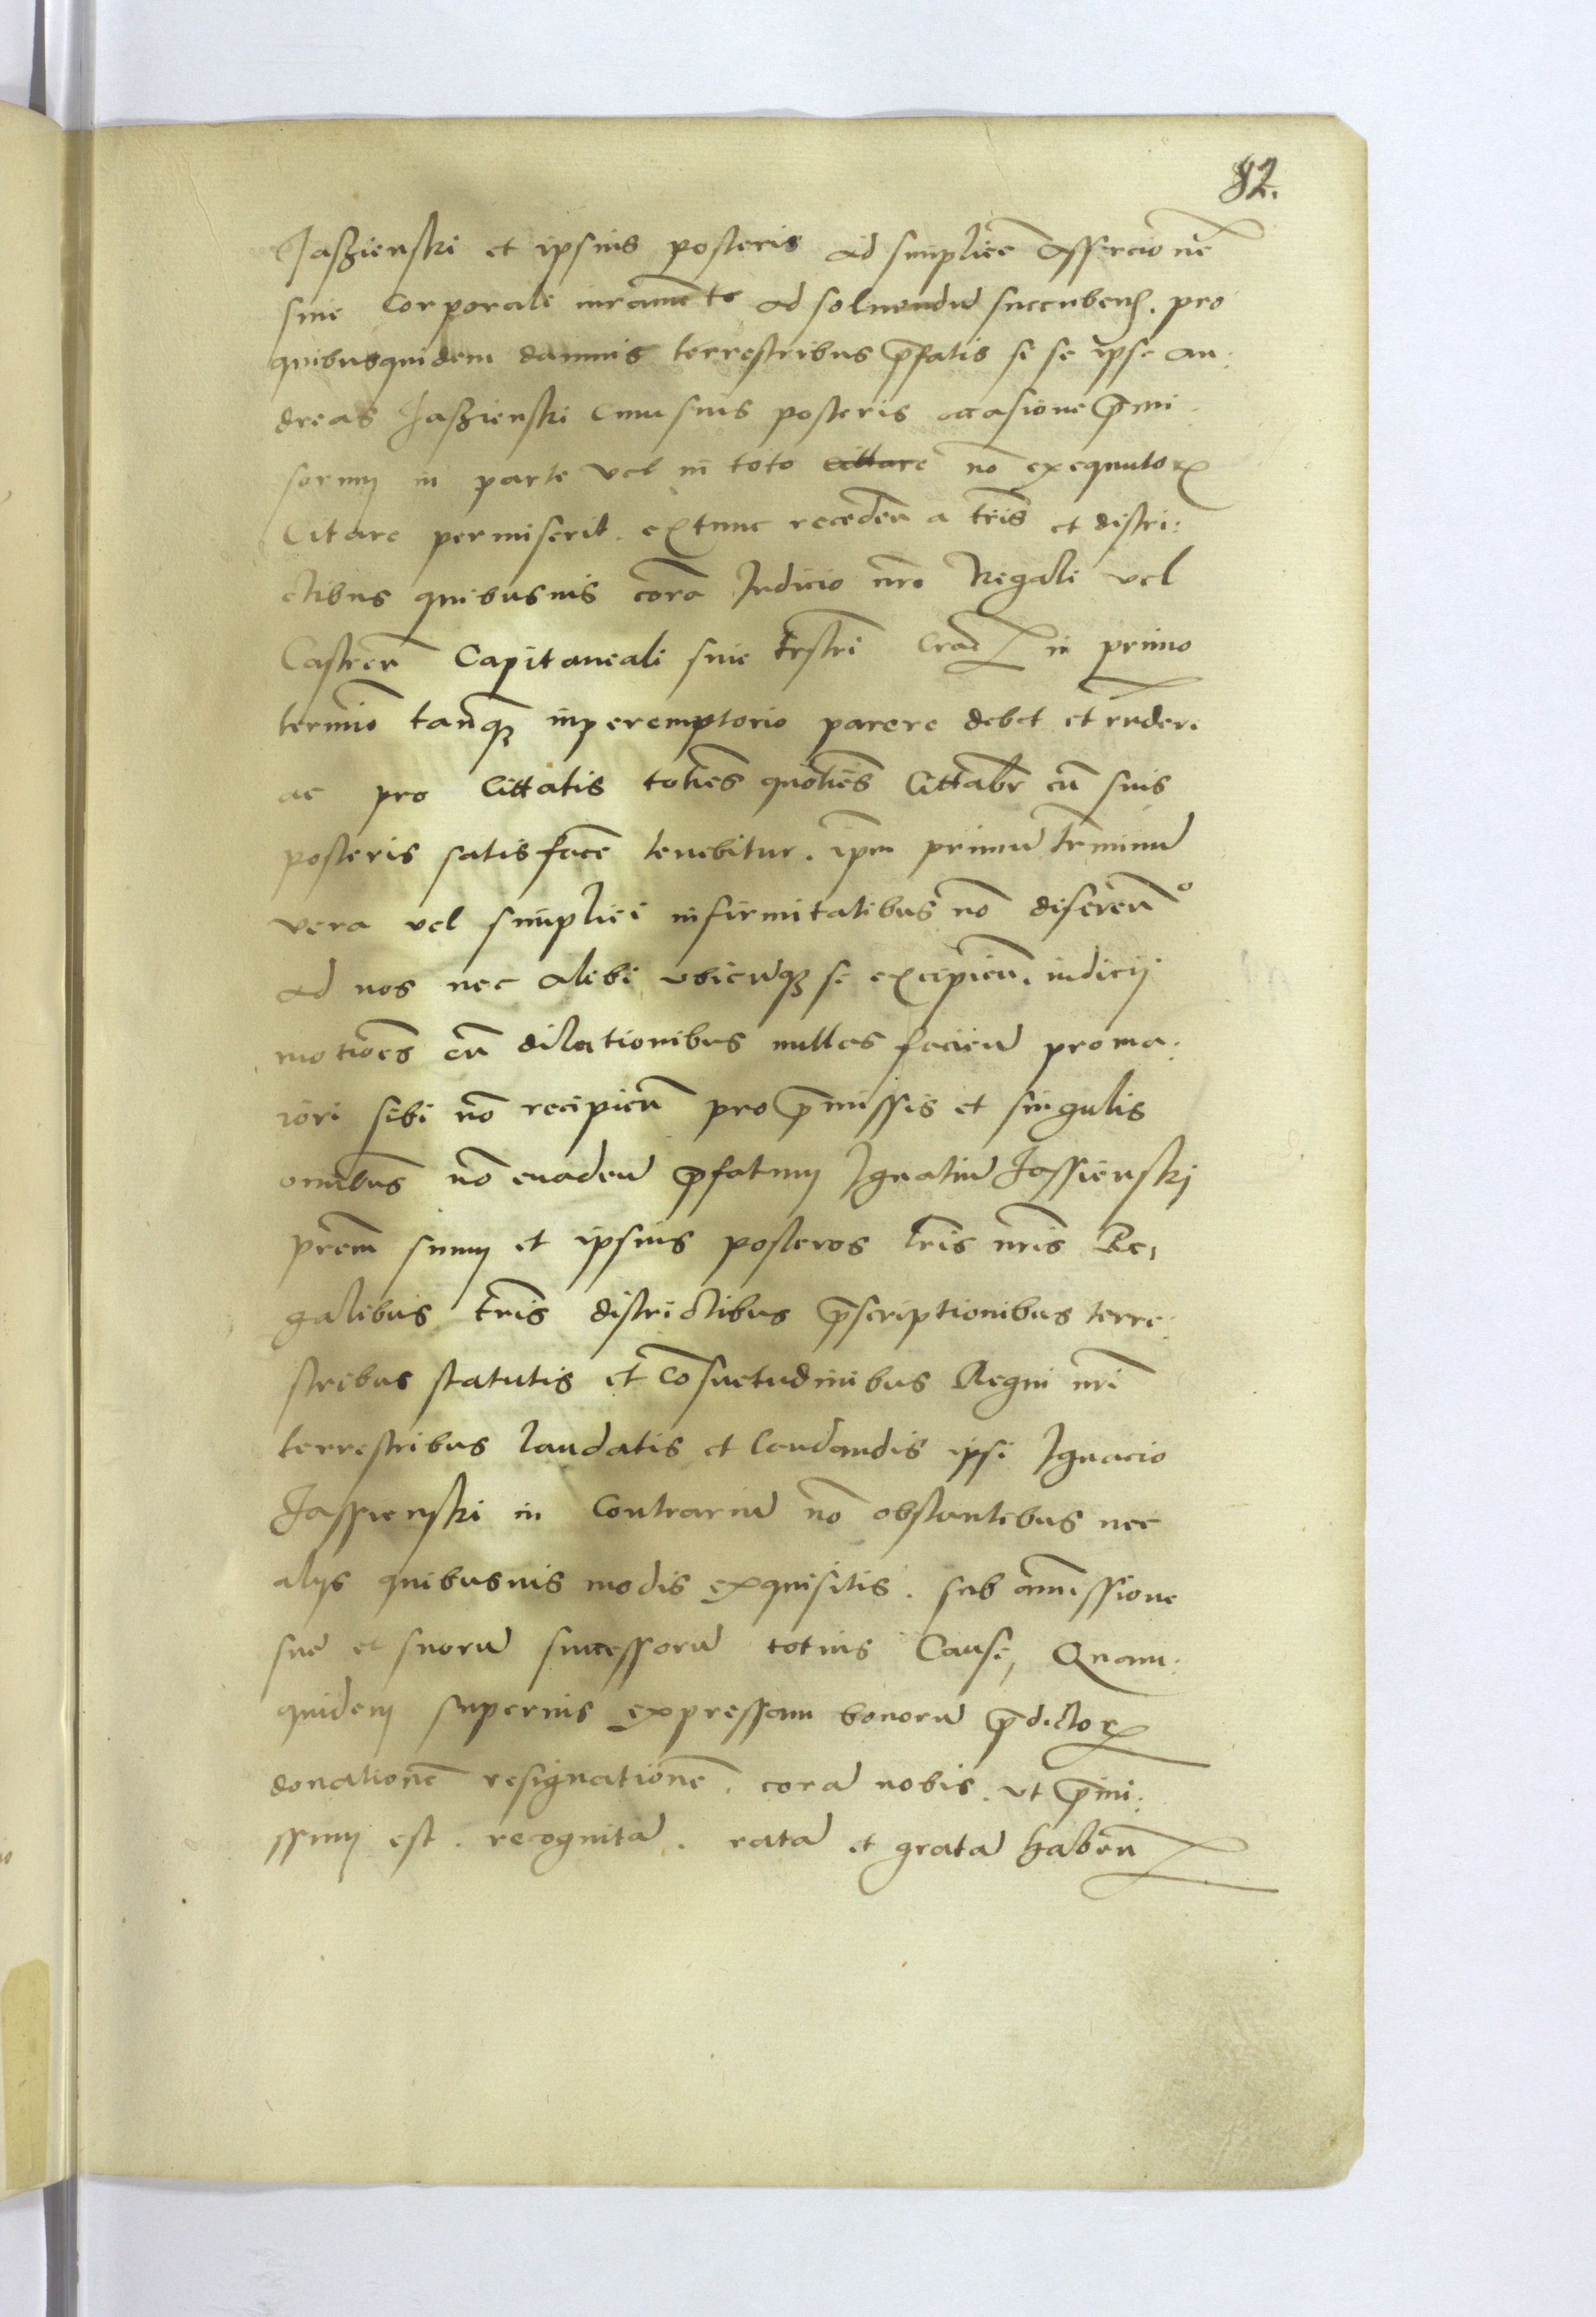 82.
Jaszienski et ipsius posteris ad simplicē Assercionē
sine Corporale iuramēto ad soluendū succubenđ. pro
quibusquidem damnis terrestribus p̄fatis si se ipse An:
dreas Jaszienski Cum suis posteris occasione p̄mi
sorum in parte vel in toto non exequutorꝝ
Citare permiserit. extunc recedeń a tr̄is et distri:
ctibus quibusuis corā Judicio nr̄o Regali vel
Castreń Capitaneali siue tr̄stri Crac in primo
termīo tanq̄ꝫ inperemptorio parere debet et rn̄dere
ac pro Cittatis toties quoties Cittabr̄ cū suis
posteris satisfacē tenebitur. ip̄m primū tr̄minū
vera vel simplici infirmitatibus nō diferenō
ad nos nec alibi vbicunqꝫ se excipień. iudicij
motiōes cū dilationibus nullas facień proma:
iori sibi nō recipień pro p̄missis et singulis
omībus nō euadeń p̄fatum Ignatiū Jassienski
prēm suum et ipsius posteros lr̄is nr̄is Re,
galibus tr̄is districtibus p̄scriptionibus terre:
stribus statutis et Cōsuetudinibus Regni nr̄i
terrestribus laudatis et laudandis ipsi Ignacio
Jassienski in Contrariū nō obstantibus nec
alijs quibusuis modis exquisitis. sub amissione
sue et suorū successorū totius Cause, Quam:
quidem superius expressam bonorū p̄dictorꝝ
donationē resignationē. corā nobis. vt p̄mi:
ssum est. recognitā. ratā et gratā habeń